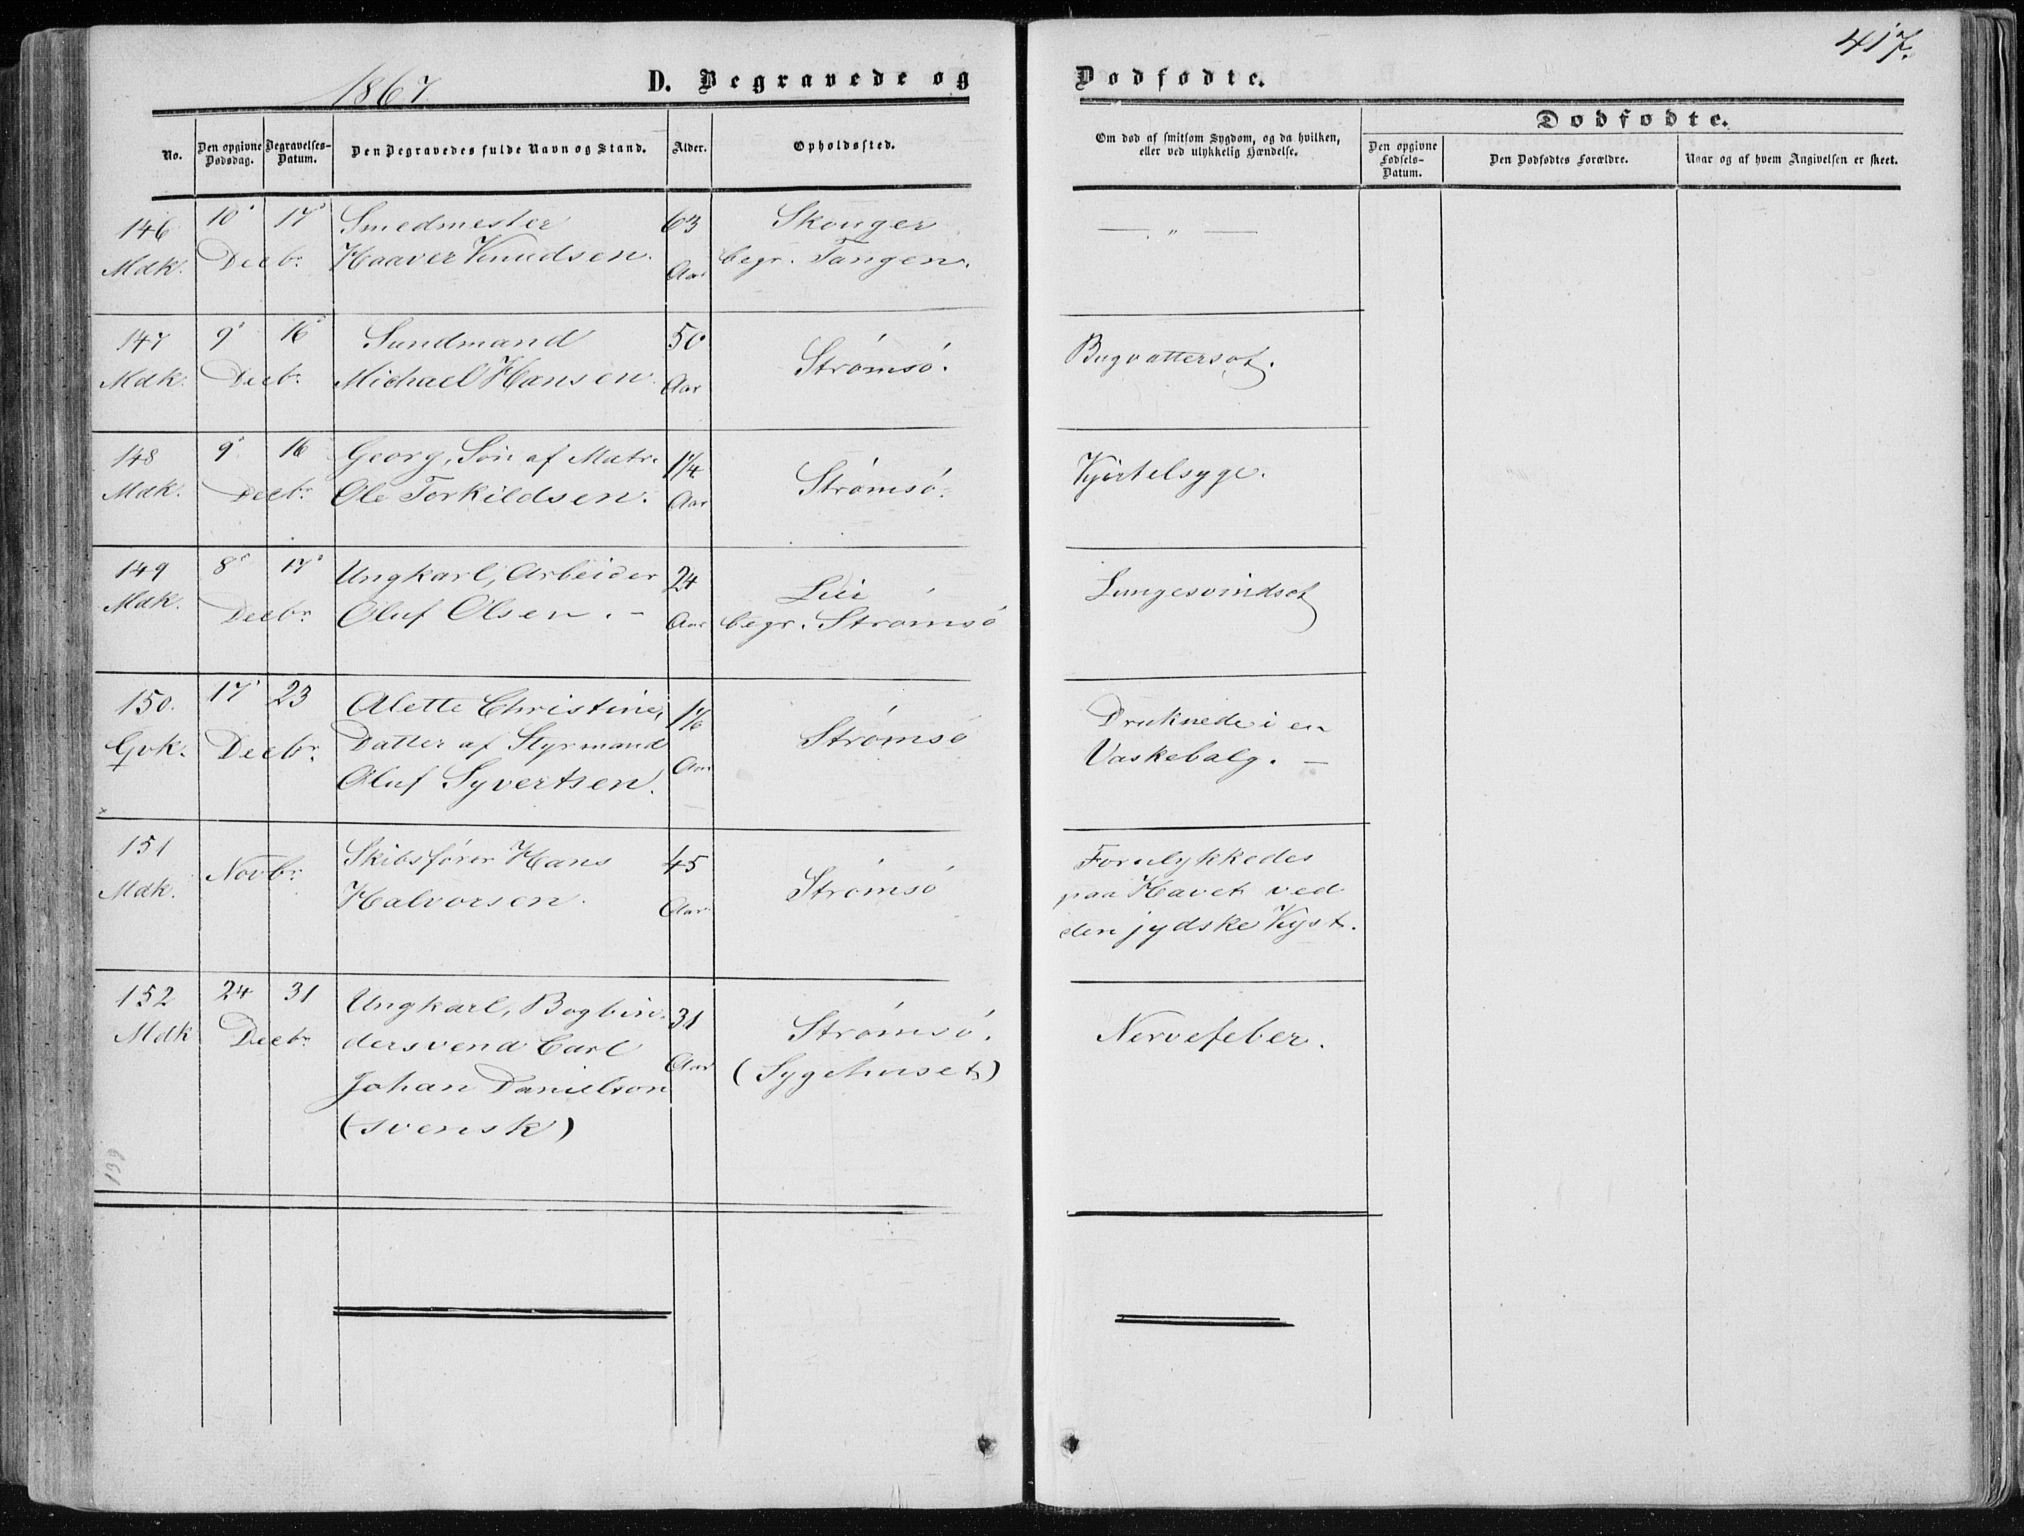 417.
1867.
D. Begravede og
Dødfødte.
No.
Den opgivne Dødsdag.
Begravelses-Datum.
Den Begravedes fulde Navn og Stand.
Alder.
Opholdssted.
Om død af smitsom Sygdom, og da hvilken, eller ved ulykkelig Hændelse.
Dødfødte.
Den opgivne Fødsels-Datum.
Den Dødfødtes Forældre.
Naar og af hvem Angivelsen er skeet.
146 10 17 Smedmester 63 Skouger
Mdk. Decbr. Haaver Knudsen. Aar begr. Tangen.
— " —
147 9 16 Sundmand 50 Strømsø.
Mdk. Decbr. Michael Hansen. Aar
Bugvattersot.
148 9 16 Georg, Søn af Matr. 1 1/4
Mdk. Decbr. Ole Torkildsen. Aar Strømsø.
Kjertelsyge.
149 8 17 Ungkarl, Arbeider 24 Lier
Mdk. Decbr. Oluf Olsen. – Aar begr. Strømsø
Lungesvindsot
150. 17 23 Alette Christine, 1 1/6
Qvk. Decbr. Datter af Styrmand Strømsø
Oluf Syvertsen. Aar
Druknede i en
Vaskebalg. –
151 Novbr. Skibsfører Hans 45 Strømsø
Mdk. Halvorsen. Aar
Forulykkedes
paa Havet ved
den jydske Kyst.
152 24 31 Ungkarl, Bogbin- 31 Strømsø.
Mdk Decbr. dersvend Carl
Johan Danielson Aar (Sygehuset)
(svensk)
Nervefeber.
139